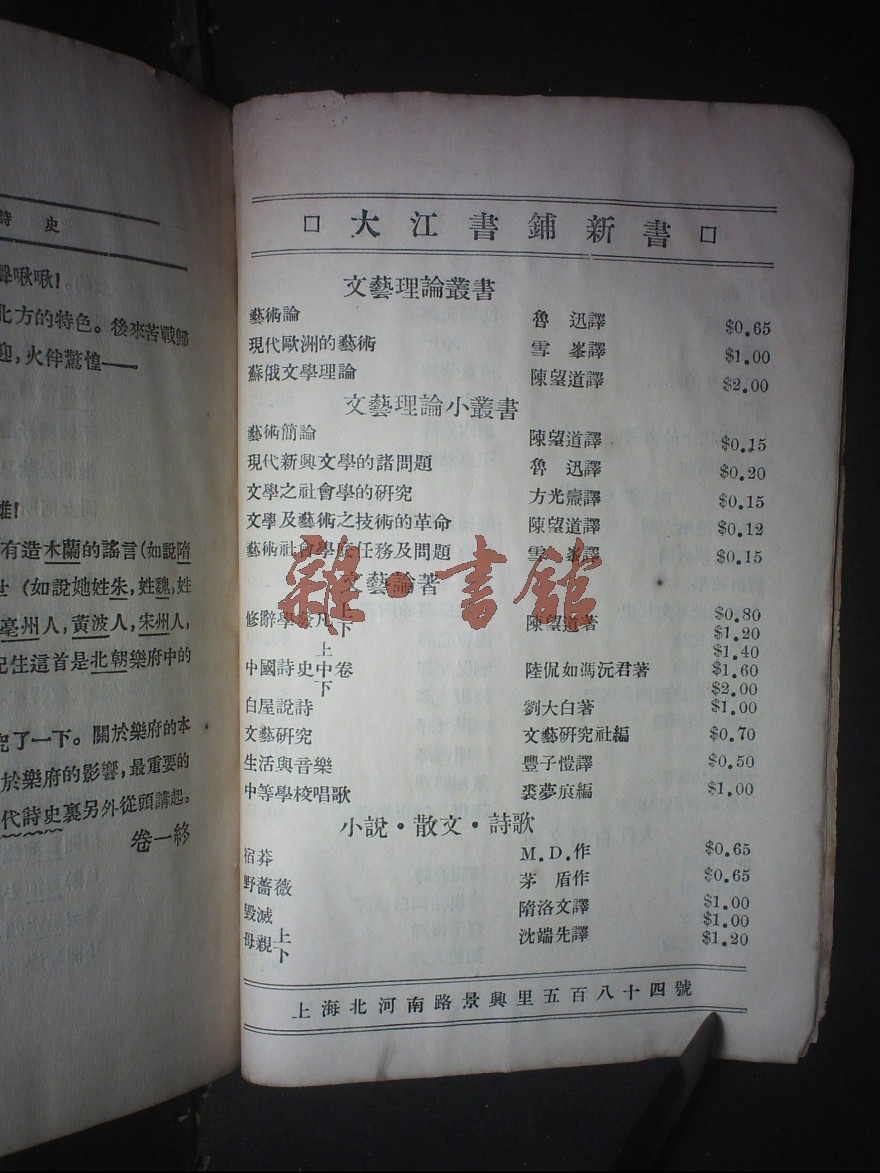 詩 史
聲啾啾!
北方的特色。後來苦戰歸
迎,火伴驚惶——
雄!
有造木蘭的謠言(如說隋
(如說她姓朱,姓魏,姓
亳州人,黃波人,宋州人,
記生這首是北朝樂府中的
究了一下。關於樂府的本
於樂府的影響,最重要的
代詩史裏另外從頭講起。
卷一終
□ 大江書鋪新書 □
文藝理論叢書
藝術論 魯 迅譯 $0.65
現代歐洲的藝術 雪 峯譯 $1.00
蘇俄文學理論 陳望道譯 $2.00
文藝理論小叢書
藝術簡論 陳望道譯 $0.15
現代新興文學的諸問題 魯 迅譯 $0.20
文學之社會學的研究 方光燾譯 $0.15
文學及藝術之技術的革命 陳望道譯 $0.12
藝術社會學底任務及問題 雪 峯譯 $0.15
文藝論著
修辭學發凡 上 下 陳望道著 $0.80 $1.20
中國詩史 上 中 下 卷 陸侃如馮沅君著 $1.40 $1.60 $2.00
白屋說詩 劉大白著 $1.00
文藝研究 文藝研究社編 $0.70
生活與音樂 豐子愷譯 $0.50
中等學校唱歌 裘夢痕編 $1.00
小說·散文·詩歌
宿莽 M.D.作 $0.65
野薔薇 茅 盾作 $0.65
毀滅 隋洛文譯 $1.00
母親 上 下 沈端先譯 $1.00 $1.20
上海北河南路景興里五百八十四號
雜·書館